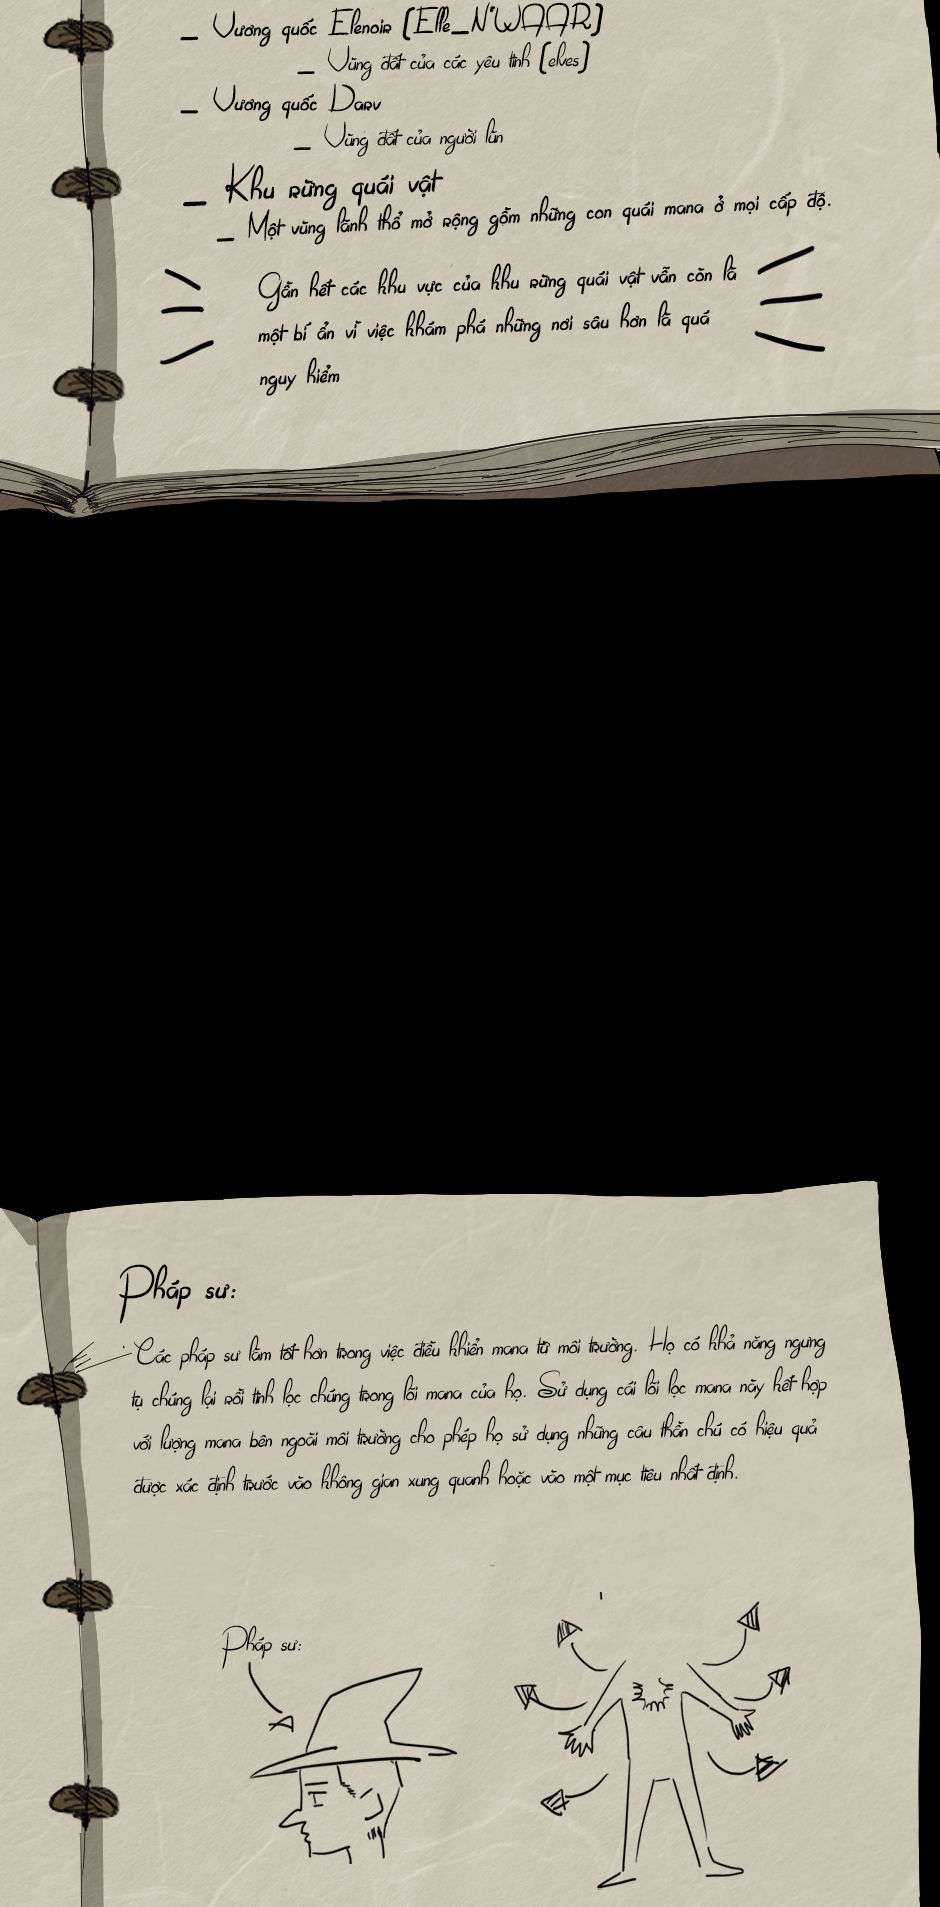 _ Vương quốc Elenoir [Elle_N'WAAR]
_ Vùng đất của các yêu tinh [elves]
_ Vương quốc Darv
_ Vùng đất của người lùn
_ Khu rừng quái vật
_ Một vùng lãnh thổ mở rộng gồm những con quái mana ở mọi cấp độ.
Gần hết các khu vực của khu rừng quái vật vẫn còn là
một bí ẩn vì việc khám phá những nơi sâu hơn là quá
nguy hiểm
Pháp sư:
Các pháp sư làm tốt hơn trong việc điều khiển mana từ môi trường. Họ có khả năng ngưng
tụ chúng lại rồi tinh lọc chúng trong lõi mana của họ. Sử dụng cái lõi lọc mana này kết hợp
với lượng mana bên ngoài môi trường cho phép họ sử dụng những câu thần chú có hiệu quả
được xác định trước vào không gian xung quanh hoặc vào một mục tiêu nhất định.
Pháp sư: